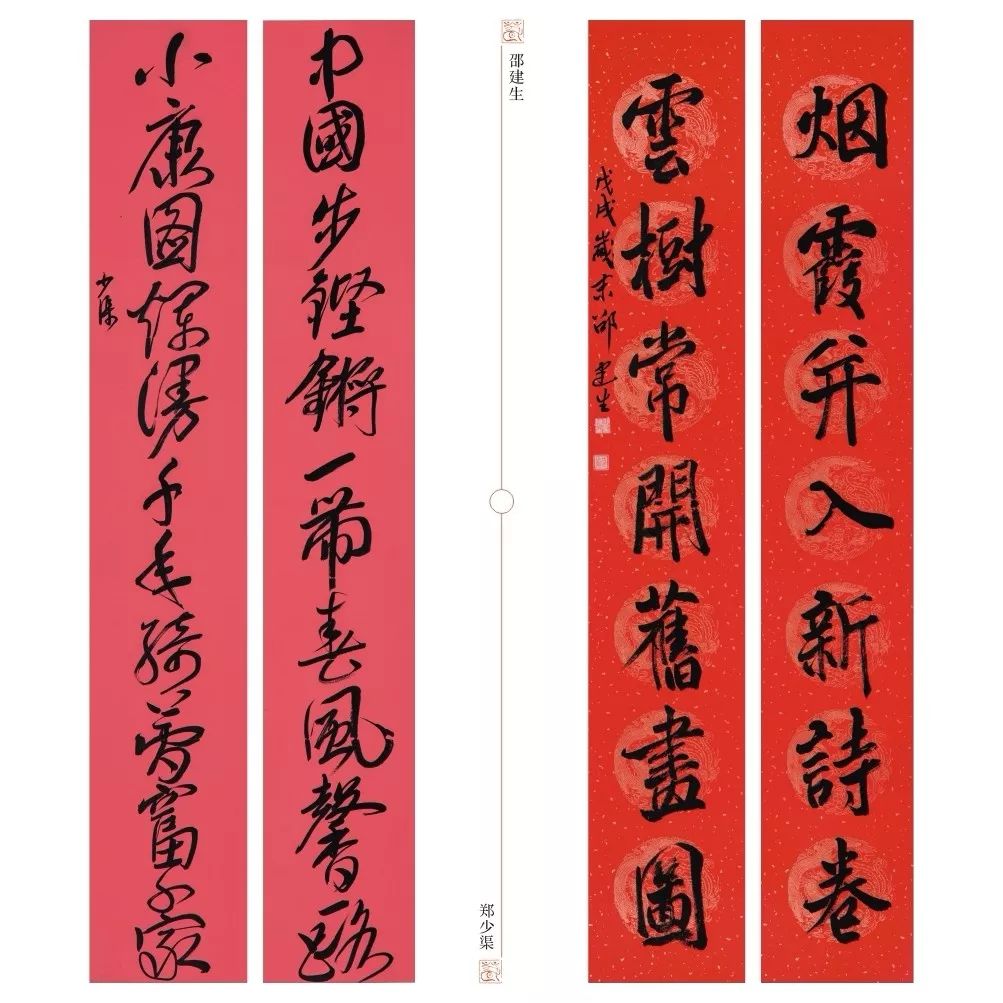 烟霞并入新詩卷
雲樹常開舊畫圖
戊戌歲末邵建生
邵建生
郑少渠
中國步鏗鏘一帶春風馨一路
小康图爛漫千年綺夢富家
少渠